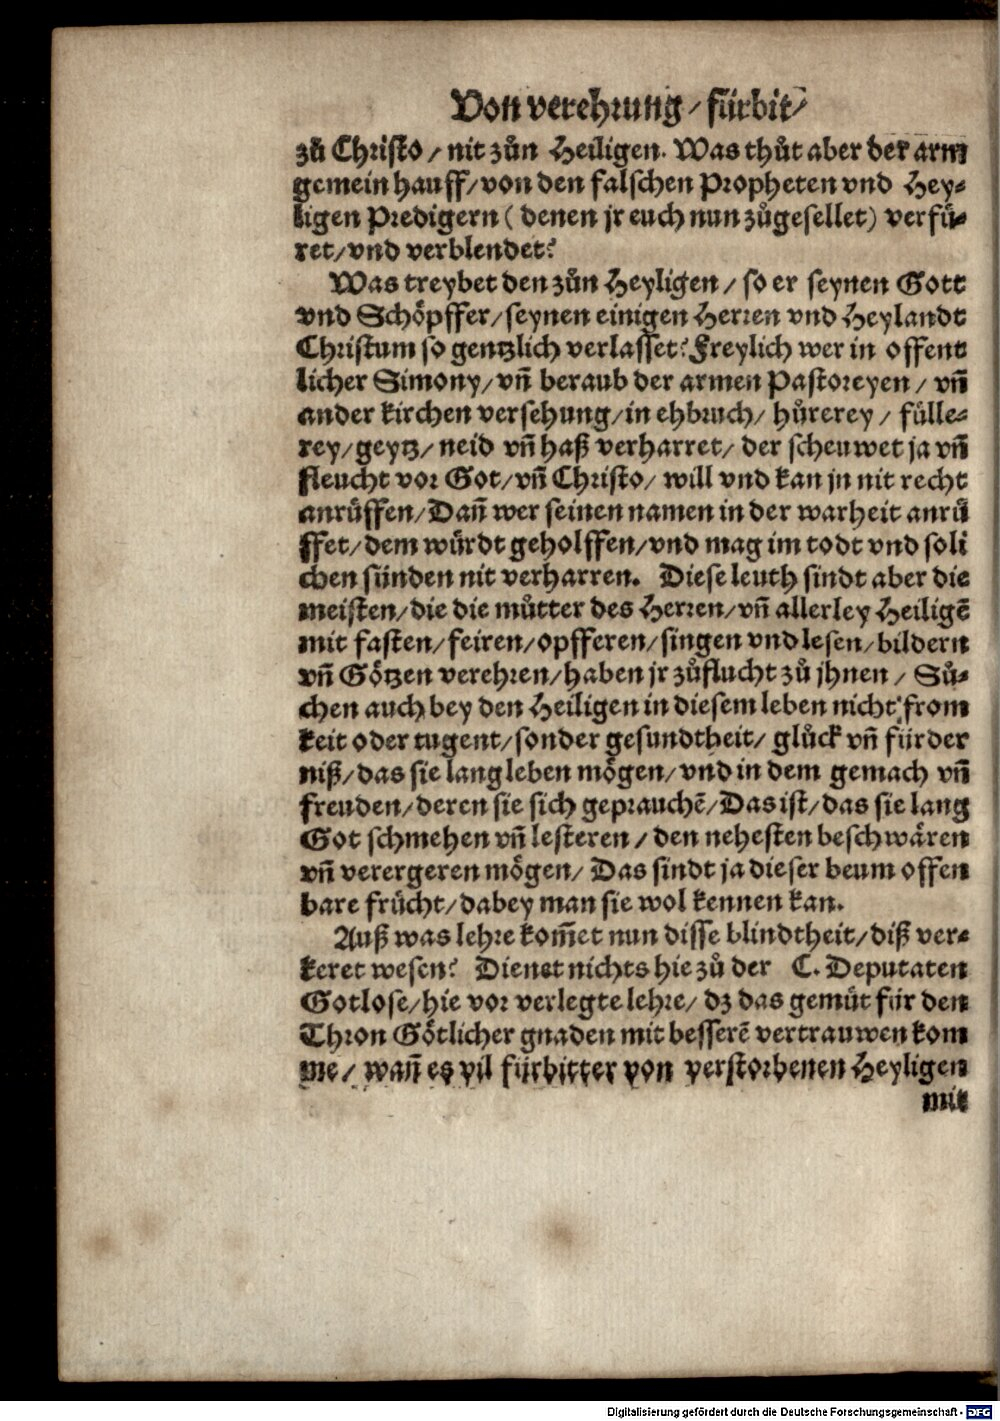 Von verehrung / fürbit /
zů Christo / nit zůn Heiligen. Was thůt aber der arm
gemein hauff / von den falschen Propheten vnd Hey-
ligen Predigern ( denen jr euch nun zůgesellet) verfü-
ret / vnd verblendet?
Was treybet den zůn Heyligen / so er seynen Gott
vnd Schöpffer / seynen einigen Herren vnd Heylandt
Christum so gentzlich verlasset? Freylich wer in offent
licher Simony / vñ beraub der armen Pastoreyen / vñ
ander kirchen versehung / in ehbruch / hůrerey / fülle-
rey / geytz / neid vñ haß verharret / der scheuwet ja vñ
fleucht vor Got / vñ Christo / will vnd kan jn nit recht
anrůffen / Dañ wer seinen namen in der warheit anrů
ffet / dem würdt geholffen / vnd mag im todt vnd soli
chen sünden nit verharren. Diese leuth sindt aber die
meisten / die die můtter des Herren / vñ allerley Heiligẽ
mit fasten / feiren / opfferen / singen vnd lesen / bildern
vñ Götzen verehren / haben jr zůflucht zů jhnen / Sů-
chen auch bey den Heiligen in diesem leben nicht from
keit oder tugent / sonder gesundtheit / glück vñ fürder
niß / das sie lang leben mögen / vnd in dem gemach vñ
freuden / deren sie sich geprauchẽ / Das ist / das sie lang
Got schmehen vñ lesteren / den nehesten beschwären
vñ verergeren mögen / Das sindt ja dieser beum offen
bare frücht / dabey man sie wol kennen kan.
Auß was lehre kom̃et nun disse blindtheit / diß ver-
keret wesen? Dienet nichts hie zů der C. Deputaten
Gotlose / hie vor verlegte lehre / dz das gemůt für den
Thron Götlicher gnaden mit besserẽ vertrauwen kom
me / wañ es vil fürbitter von verstorbenen Heyligen
mit
Digitalisierung gefördert durch die Deutsche Forschungsgemeinschaft - DFG